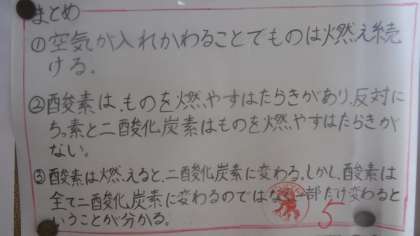 まとめ
①空気が入れかわることでものは燃え続
ける。
②酸素は、ものを燃やすはたらきがあり、反対に
ちっ素と二酸化炭素はものを燃やすはたらきが
ない。
③酸素は燃えると、二酸化炭素に変わる。しかし、酸素は
全て二酸化炭素に変わるのではな 一部だけ変わると
いうことが分かる。
5